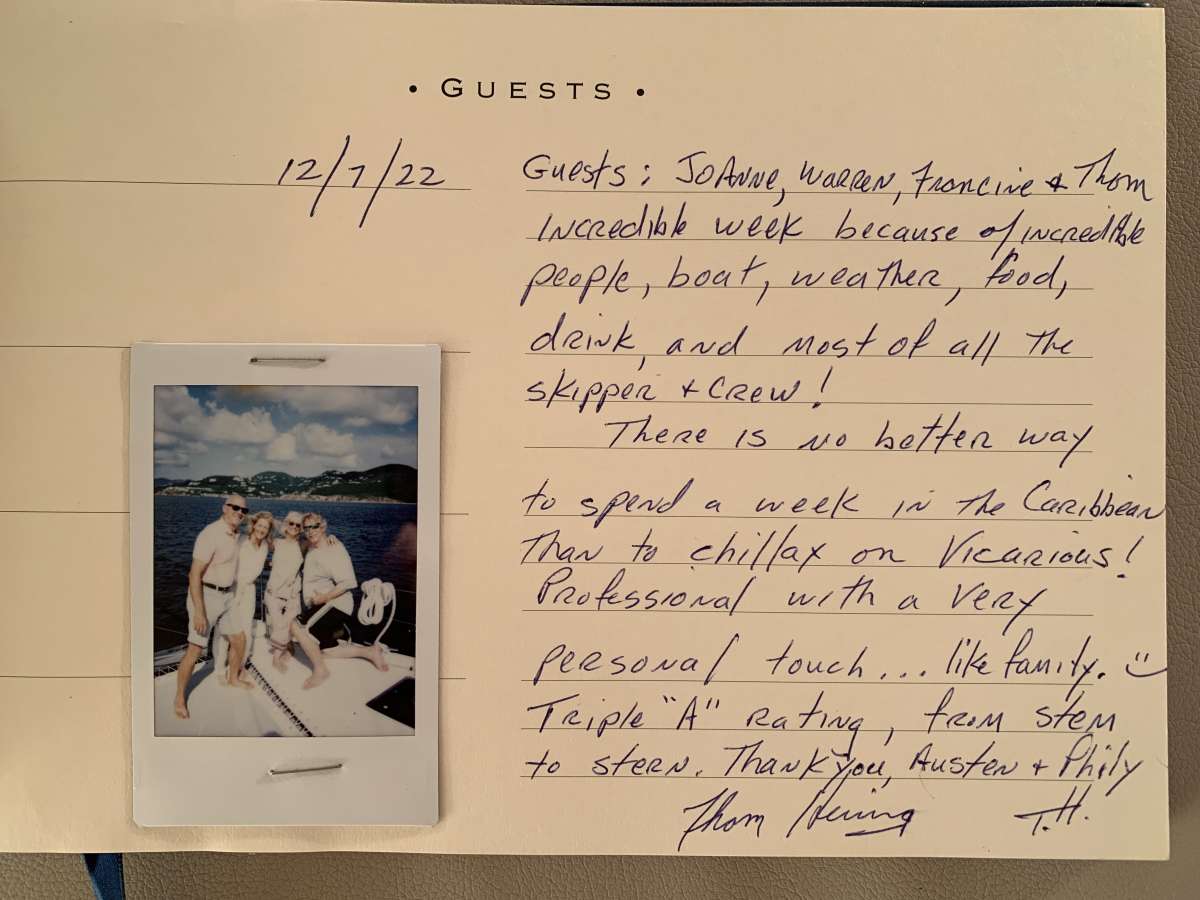 • GUESTS •
12/7/22
Guests: JoAnne, Warren, Francine & Thom
Incredible week because of incredible
people, boat, weather, food,
drink, and most of all the
skipper + crew!
There is no better way
to spend a week in the Caribbean
Than to chillax on Vicarious!
Professional with a very
personal touch... like family. :)
Triple "A" rating, from stem
to stern. Thank you, Austen + Phily
Thom
T.H.